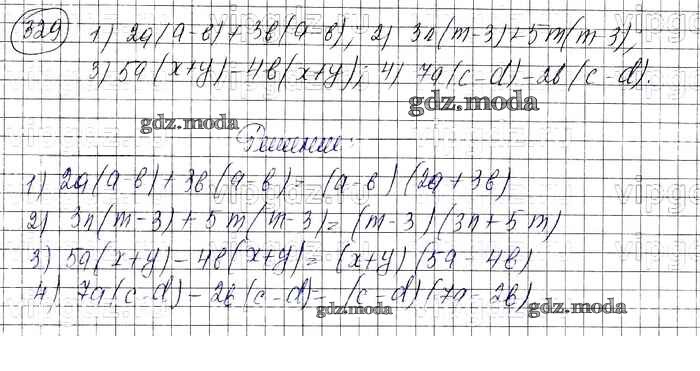 329 1) 2a(a-b)+3b(a-b); 2) 3n(m-3)+5m(m-3);
3) 5a(x+y)-4b(x+y); 4) 7a(c-d)-2b(c-d).
gdz.moda
gdz.moda
Решение:
1) 2a(a-b)+3b(a-b)=(a-b)(2a+3b)
2) 3n(m-3)+5m(m-3)=(m-3)(3n+5m)
3) 5a(x+y)-4b(x+y)=(x+y)(5a-4b)
4) 7a(c-d)-2b(c-d)=(c-d)(7a-2b)
gdz.moda gdz.moda